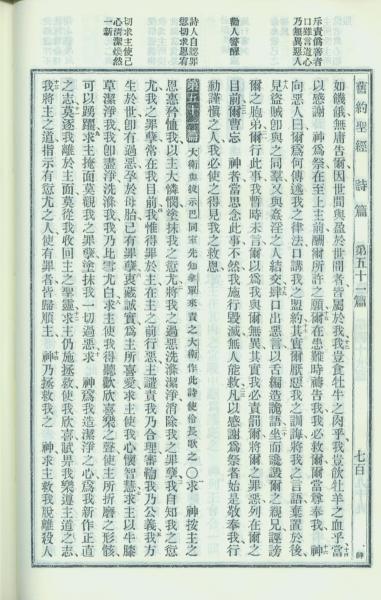 舊約聖經 詩篇 第五十一篇 七百
斥責偽善者
口雖言道心
乃無異惡人
勸人警醒
詩人自認罪
愆切求恩宥
切求主使己
心清潔煥然
一新
如饑餓無庸告爾因世間與盈於世間者皆屬於我我豈食牡牛之肉乎我豈飲牡羊之血乎當
以感謝 神為祭在至上主前酬爾所許之願爾在患難時禱告我我必救爾爾當尊奉我 神
向惡人曰爾為何傳述我之律法口講我之盟約其實爾厭惡我之訓誨將我之言語棄置於後
見盜賊卽與之同羣又與姦淫之人結交肆口出惡言以舌編造詭語坐而讒譭爾之親兄誣謗
爾之胞弟爾行此事我暫時未言爾以為我與爾無異其實我必責罰爾將爾之罪惡列在爾之
目前爾曹忘 神者當思念此事不然我施行毀滅無人能救凡以感謝為祭者始是敬奉我行
動謹慎之人我必使之得見我之救恩
第五十一篇 大衛與拔示巴同室先知拿單來責之大衛作此詩使伶長歌之〇求 神按主之
恩惠矜恤我以主大憐憫塗抹我之愆尤將我之過惡洗滌潔淨消除我之罪孽我自知我之愆
尤我之罪孽常在我目前我惟得罪於主在主之前行惡主譴責我乃合理審輀我乃公義我方
生於世卽有過惡孕於母胎已有罪孽衷藏誠實為主所喜愛求主使我心懷智慧求主以牛膝
草潔淨我我卽盡淨洗滌我我乃比雪尤白求主使我得聽歡欣喜樂之聲使主所折磨之形骸
可以踴躍求主掩面莫觀我之罪孽塗抹我一切過惡求 神為我造潔淨之心為我新作正直
之志莫逐我離於主面莫從我收回主之聖靈求主仍施拯救使我欣喜賦畀我樂遵主道之志
我將主之道指示有愆尤之人使有罪者皆歸順主 神乃拯救我之 神求主救我脫離殺人